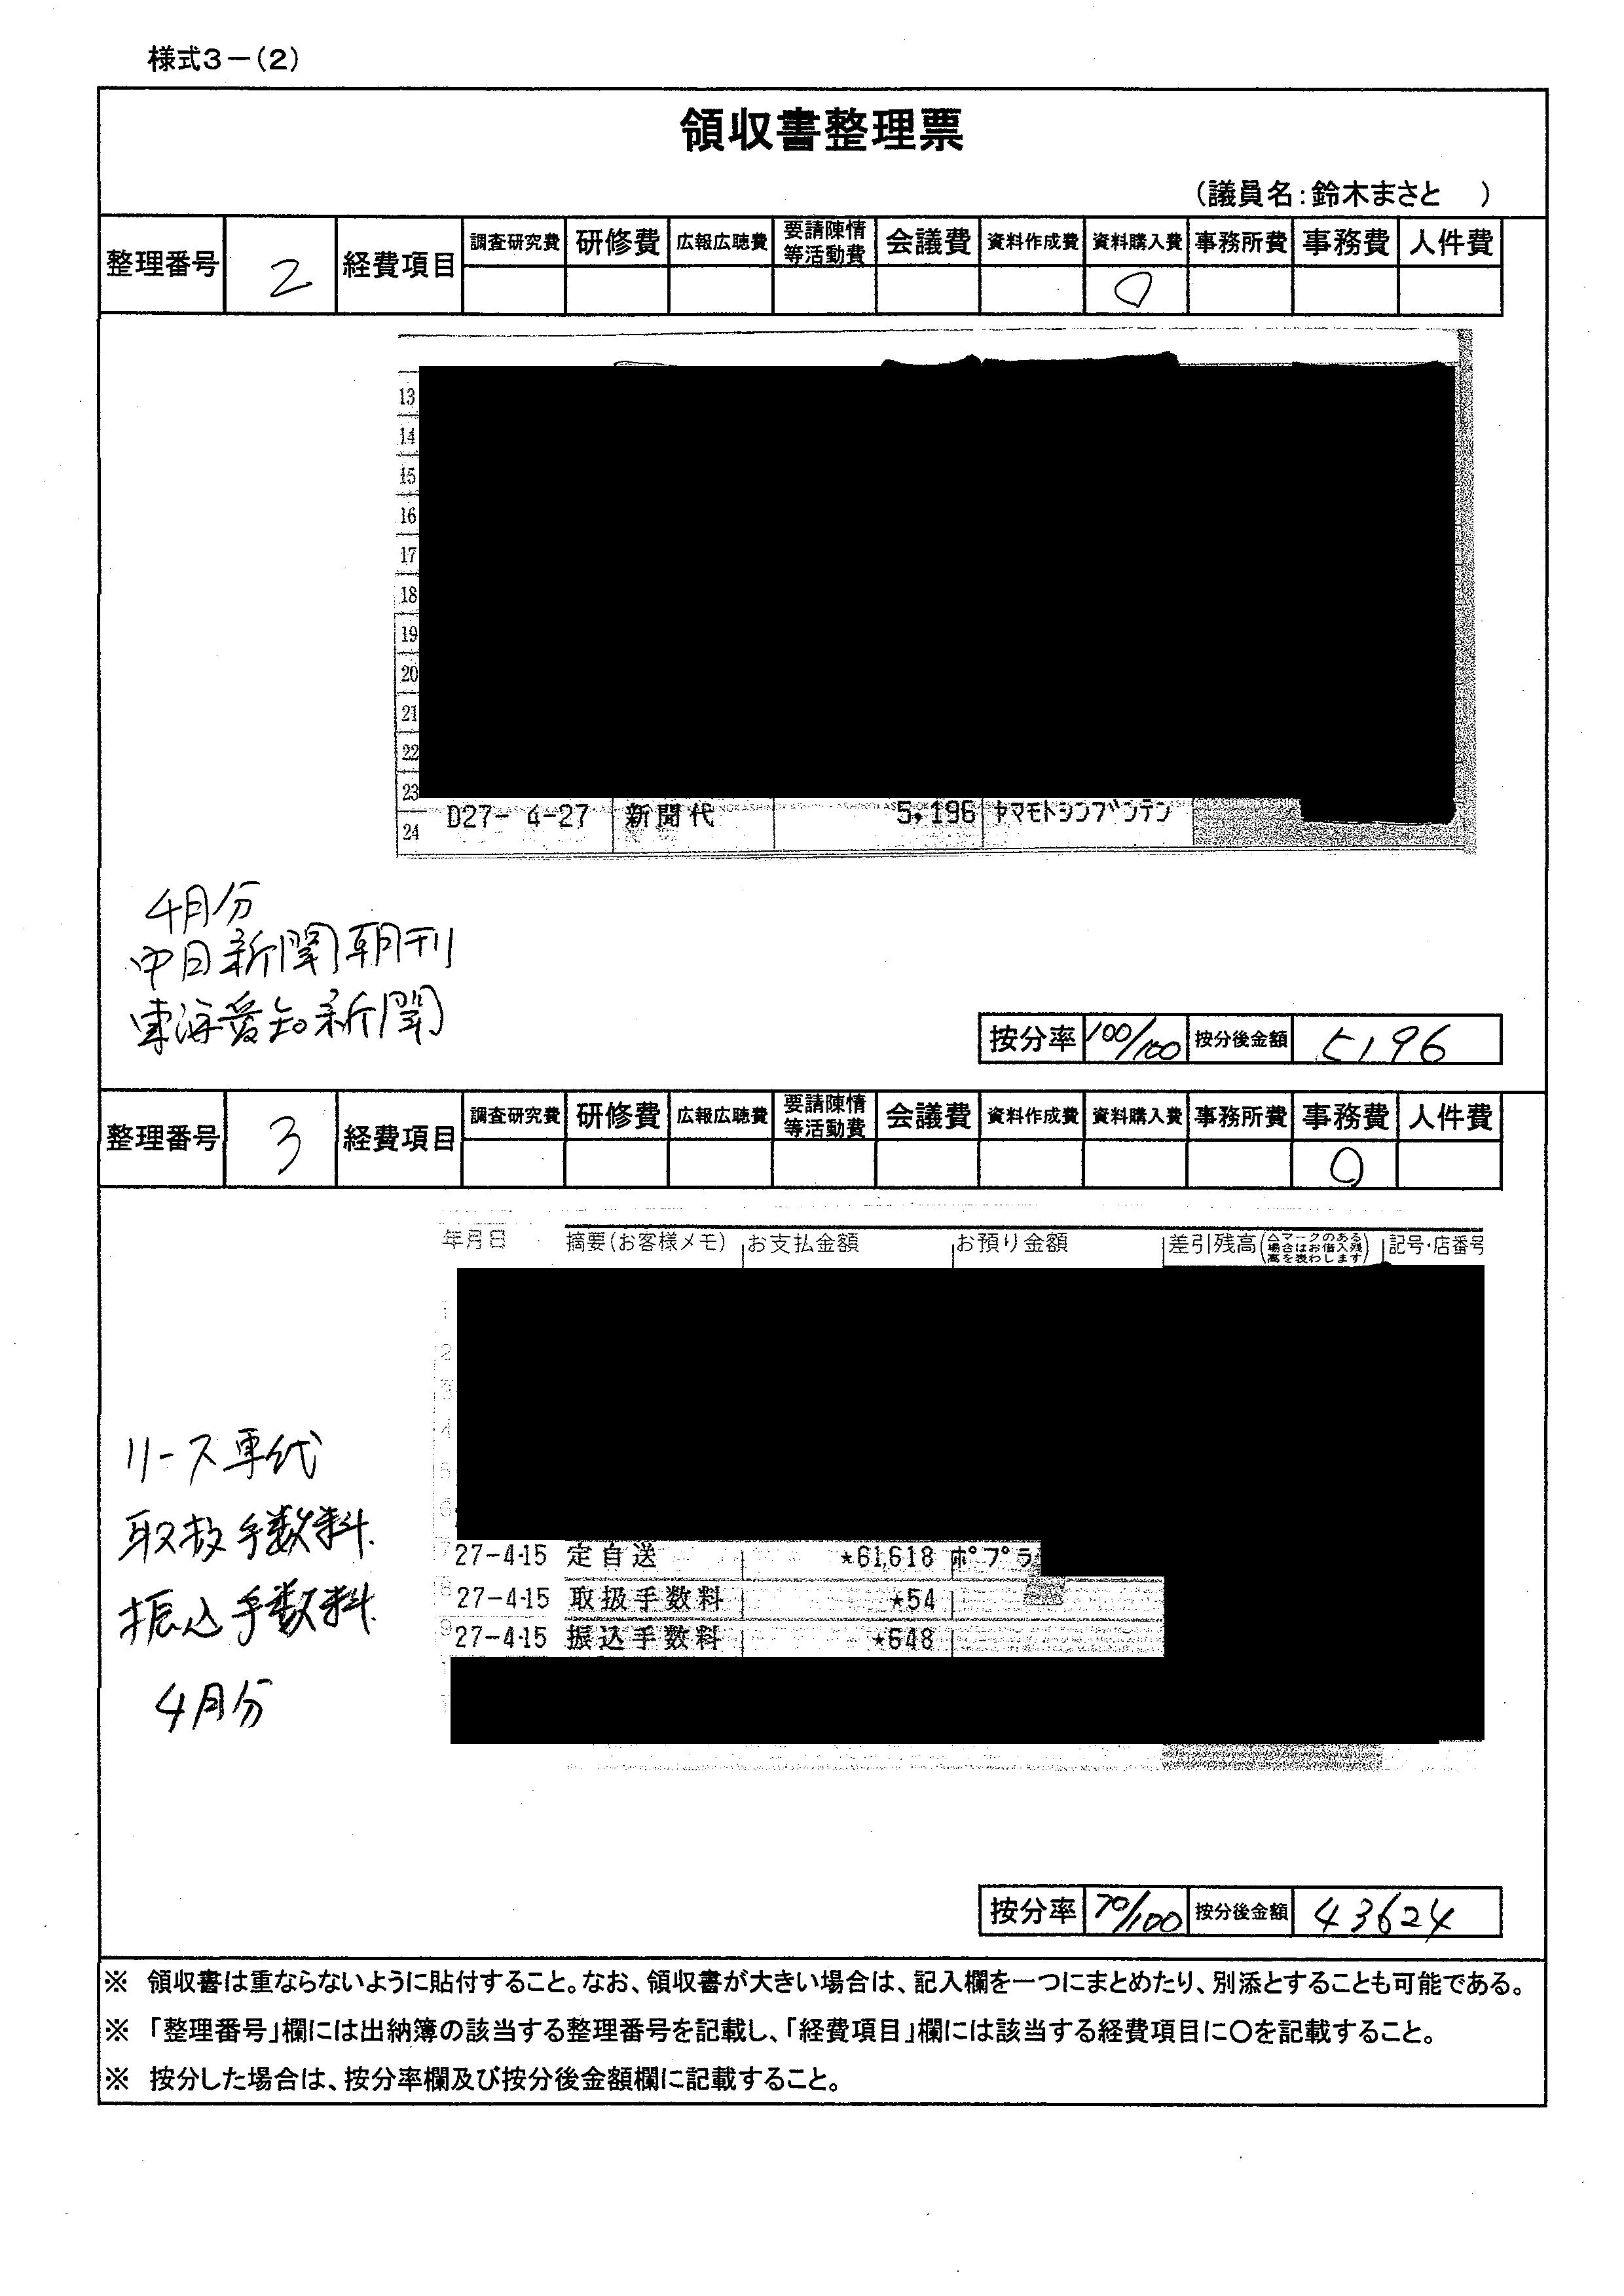 様式3－(2)
領収書整理票
（議員名：鈴木まさと　）
整理番号 2 経費項目 調査研究費 研修費 広報広聴費 要請陳情等活動費 会議費 資料作成費 資料購入費 事務所費 事務費 人件費
○
13
14
15
16
17
18
19
20
21
22
23
24 D27- 4-27 新聞代 5,196 ヤマモトシンブンテン
4月分
中日新聞朝刊
東海愛知新聞
按分率 100/100 按分後金額 5196
整理番号 3 経費項目 調査研究費 研修費 広報広聴費 要請陳情等活動費 会議費 資料作成費 資料購入費 事務所費 事務費 人件費
○
年月日 摘要(お客様メモ) お支払金額 お預り金額 差引残高(△マークのある場合はお借入残高を表わします) 記号・店番号
1
2
3
4
5
6
7 27-4-15 定自送 ★61,618 ポプラ
8 27-4-15 取扱手数料 ★54
9 27-4-15 振込手数料 ★648
リース車代
取扱手数料
振込手数料
4月分
按分率 70/100 按分後金額 43624
※ 領収書は重ならないように貼付すること。なお、領収書が大きい場合は、記入欄を一つにまとめたり、別添とすることも可能である。
※ 「整理番号」欄には出納簿の該当する整理番号を記載し、「経費項目」欄には該当する経費項目に○を記載すること。
※ 按分した場合は、按分率欄及び按分後金額欄に記載すること。